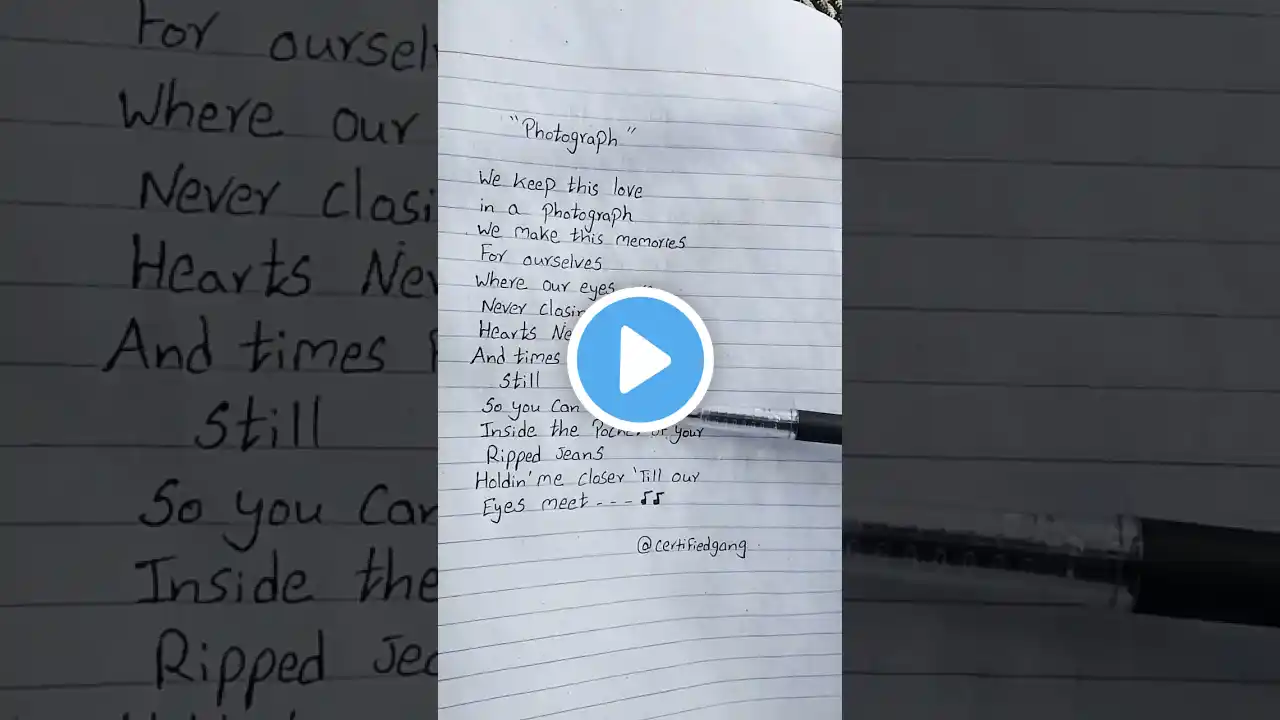 "Photograph"
We keep this love
in a photograph
We make this memories
For ourselves
Where our eyes
Never
Hearts
And times
still
So you can
Inside the your
Ripped Jeans
Holdin' me closer 'Till our
Eyes meet - - - ♫♫
@certifiedgang